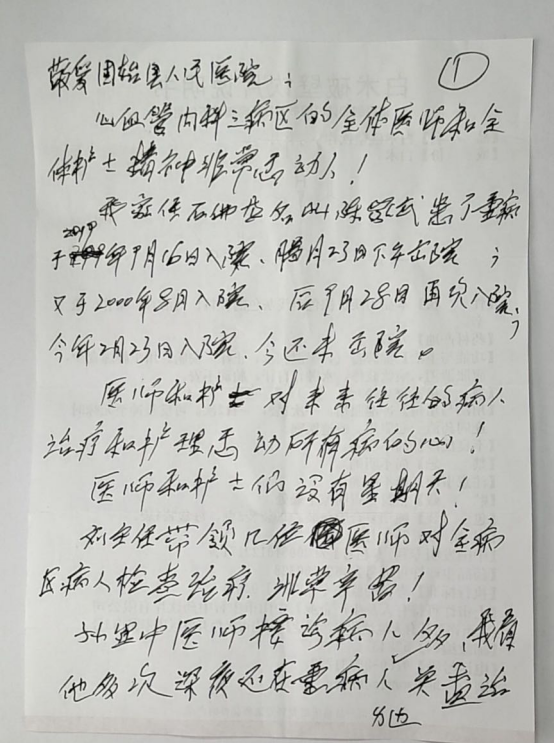 ①
荣爱固始县人民医院；
心血管内科三病区的全体医师和全
体护士精神非常感动人！
我家住石佛 叫陈 武患了重病
2019
于 年9月16日入院、腊月23日下午出院；
又于2000年8月入院、后9月28日再次入院；
今年2月23日入院、今还未出院。
医师和护士对来来往往的病人
治疗和护理感动所有病的心！
医师和护士们没有星期天！
刘主任带领几位医师对全病
区病人检查治疗、非常辛苦！
孙 中医师接诊病人多、我看
他多次深夜还在重病人 边 查治